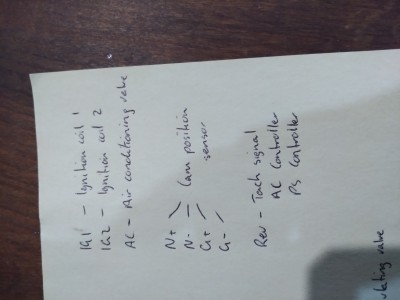 IG1 - Ignition coil 1
IG2 - Ignition coil 2
AC - Air conditioning valve
N+
N- Cam position
G+ sensor
G-
Rev - Tach signal
AC Controller
PS Controller
ulating valve